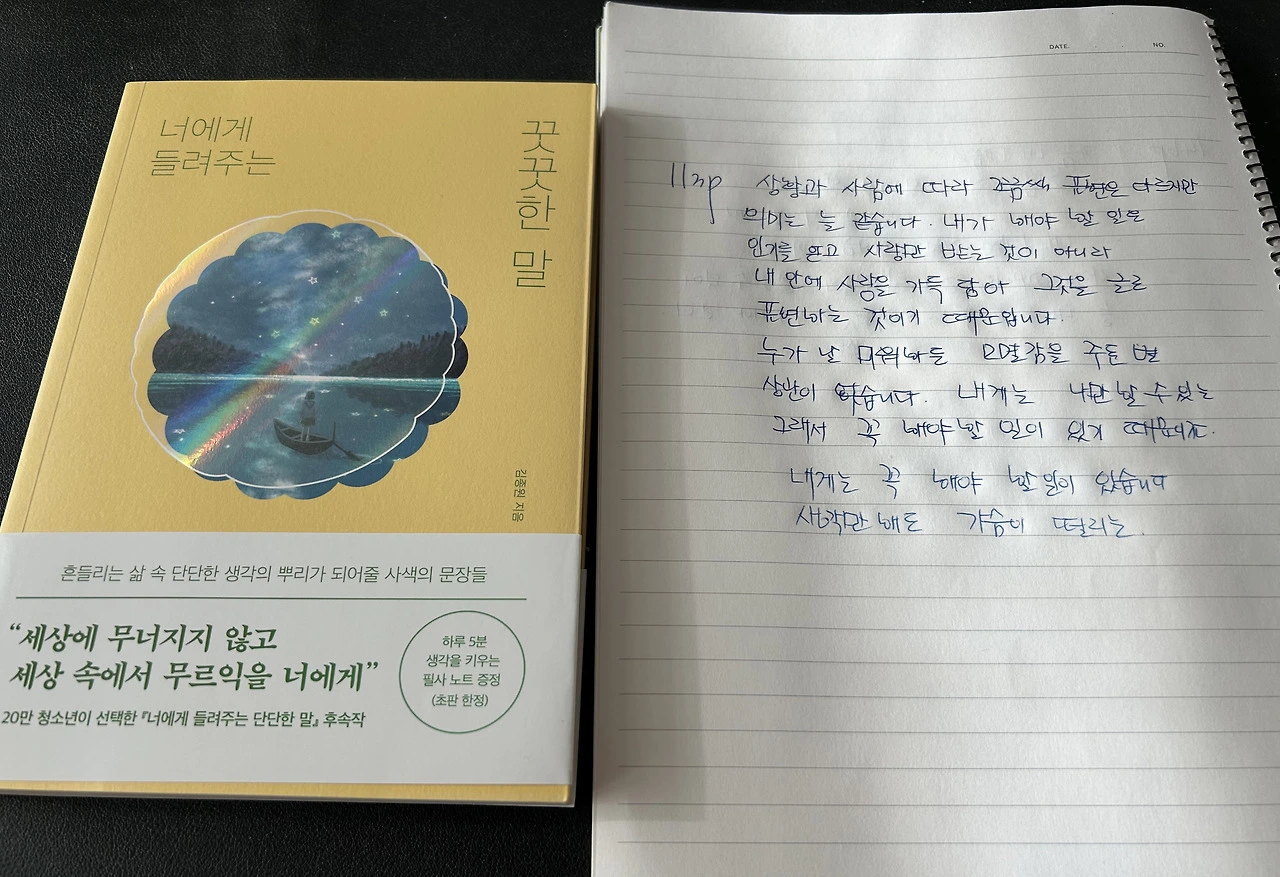 너에게
들려주는
꿋꿋한 말
김종원 지음
흔들리는 삶 속 단단한 생각의 뿌리가 되어줄 사색의 문장들
“세상에 무너지지 않고
세상 속에서 무르익을 너에게”
20만 청소년이 선택한 『너에게 들려주는 단단한 말』 후속작
하루 5분
생각을 키우는
필사 노트 증정
(초판 한정)
DATE. NO.
113p 상황과 사람에 따라 조금씩 표현은 다르지만
의미는 늘 같습니다. 내가 해야 할 일은
인기를 얻고 사랑만 받는 것이 아니라
내 안에 사랑을 가득 담아 그것을 글로
표현하는 것이기 때문입니다.
누가 날 미워하든 모멸감을 주든 별
상관이 없습니다. 내게는 나만 할 수 있는
그래서 꼭 해야 할 일이 있기 때문이죠.
내게는 꼭 해야 할 일이 있습니다
생각만 해도 가슴이 떨리는.